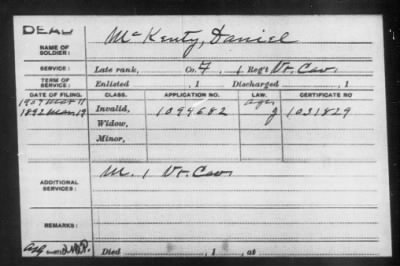 DEAD
NAME OF SOLDIER: McKenty, Daniel
SERVICE: Late rank, Co. F, 1 Reg't Vt. Cav.
TERM OF SERVICE: Enlisted , 1 Discharged , 1
DATE OF FILING. CLASS. APPLICATION NO. LAW. CERTIFICATE NO.
1907 Mar 11
1892 Mar 19 Invalid, 1099682 1031829
Widow,
Minor,
ADDITIONAL SERVICES: M. 1 Vt. Cav.
REMARKS:
Died , 1 , at